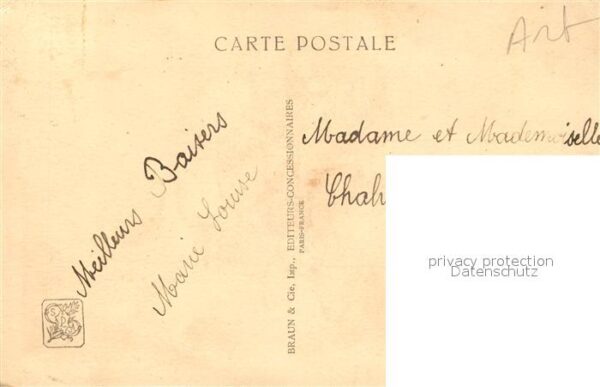 CARTE POSTALE
Art
Meilleurs Baisers
Marie Louise
BRAUN & Cie, Imp., EDITEURS-CONCESSIONNAIRES
PARIS-FRANCE
Madame et Mademoiselle
privacy protection
Datenschutz